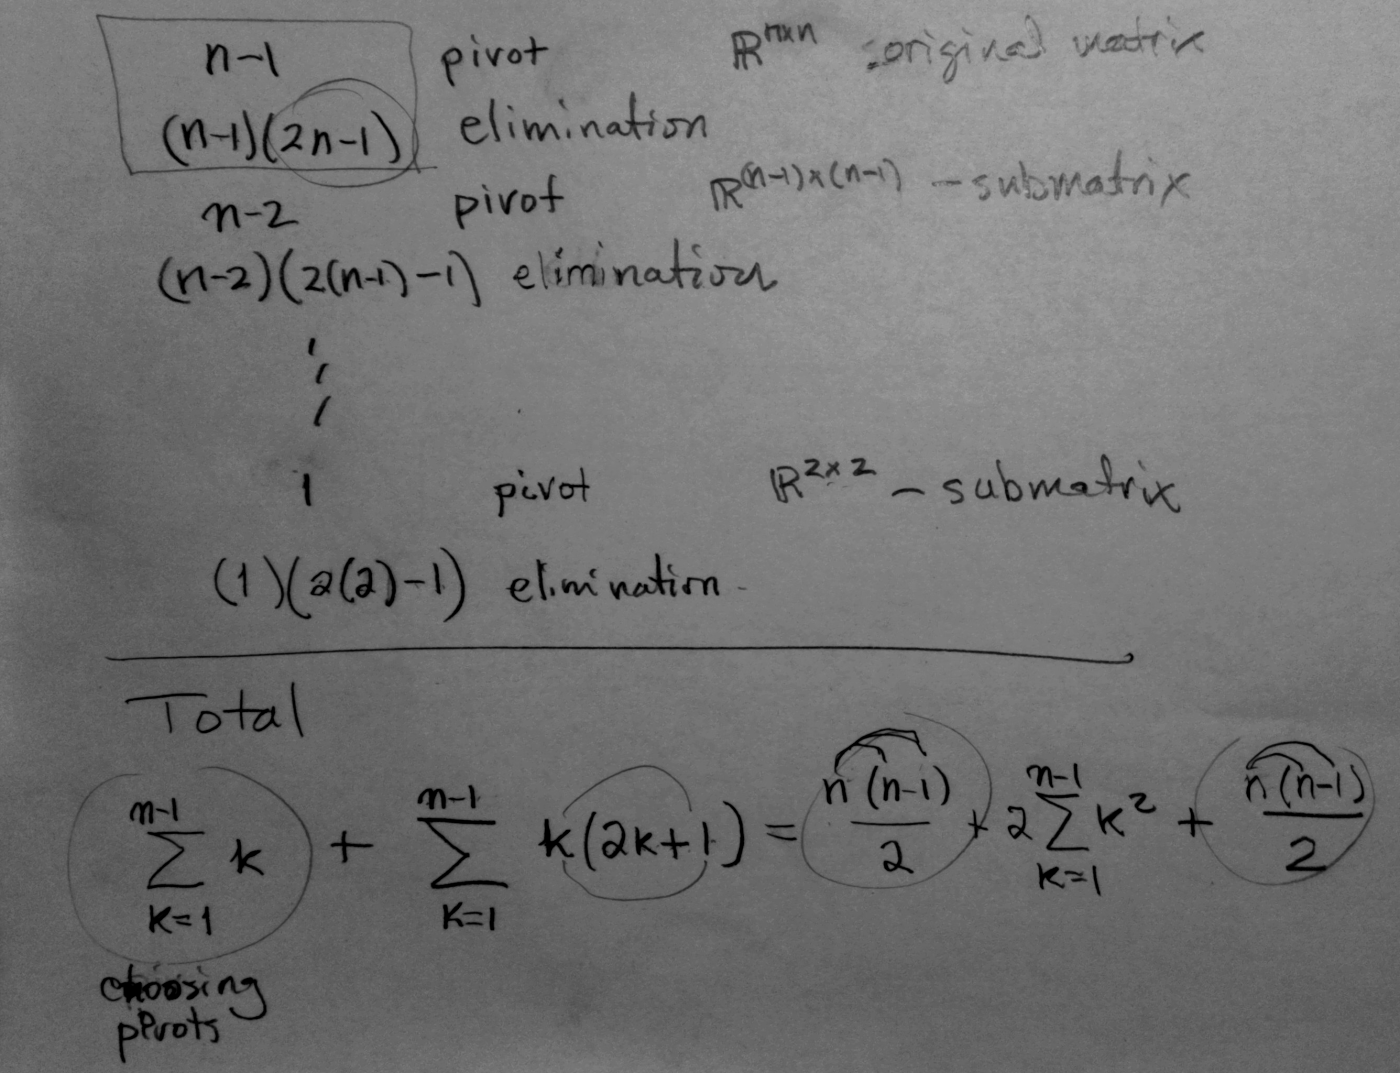 n-1 pivot ℝⁿˣⁿ : original matrix
(n-1)(2n-1) elimination
n-2 pivot ℝ⁽ⁿ⁻¹⁾ˣ⁽ⁿ⁻¹⁾ - submatrix
(n-2)(2(n-1)-1) elimination
⋮
1 pivot ℝ²ˣ² - submatrix
(1)(2(2)-1) elimination
Total
∑_{k=1}^{n-1} k + ∑_{k=1}^{n-1} k(2k+1) = n(n-1)/2 + 2∑_{k=1}^{n-1} k² + n(n-1)/2
choosing
pivots